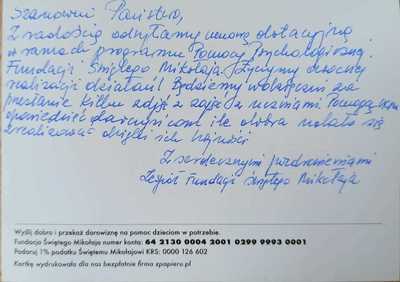 Szanowni Państwo,
Z radością odsyłamy umowę dotacyjną
w ramach programu Pomocy Psychologicznej
Fundacji Świętego Mikołaja. Życzymy owocnej
realizacji działań! Będziemy wdzięczni za
przesłanie kilku zdjęć z zajęć z uczniami. Pomogą nam
opowiedzieć darczyńcom ile dobra udało się
zrealizować dzięki ich hojności
Z serdecznymi pozdrowieniami
Zespół Fundacji Świętego Mikołaja
Wyślij dobro i przekaż darowiznę na pomoc dzieciom w potrzebie.
Fundacja Świętego Mikołaja numer konta: 64 2130 0004 2001 0299 9993 0001
Podaruj 1% podatku Świętemu Mikołajowi KRS: 0000 126 602
Kartkę wydrukowała dla nas bezpłatnie firma zpapieru.pl